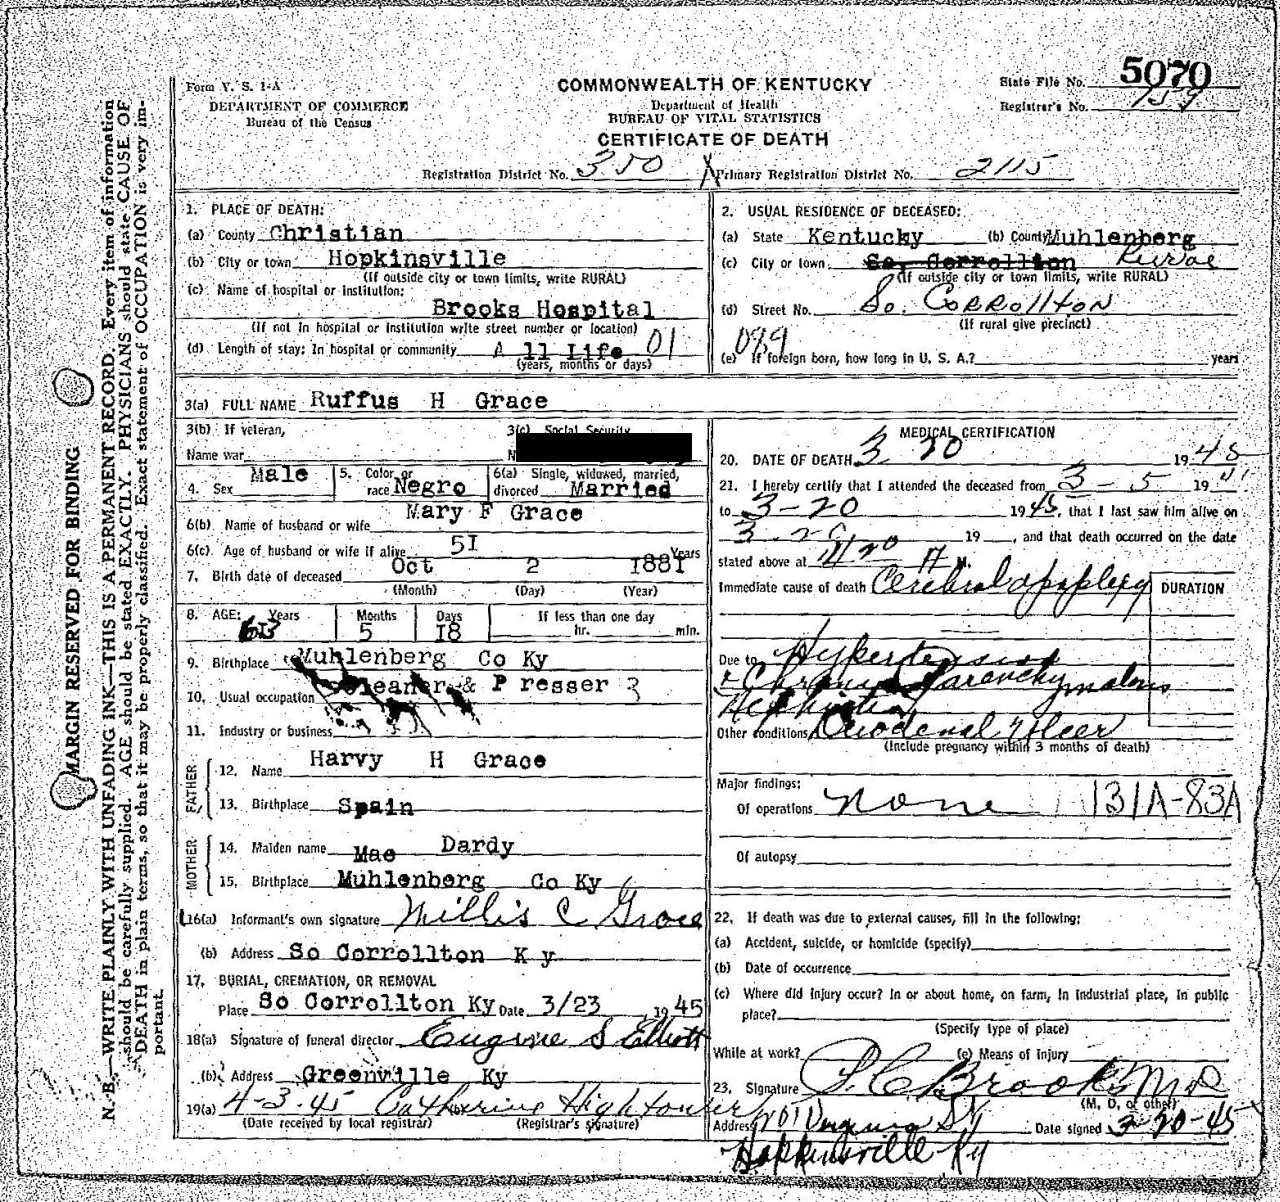 Form V. S. 1-A
DEPARTMENT OF COMMERCE
Bureau of the Census
COMMONWEALTH OF KENTUCKY
Department of Health
BUREAU OF VITAL STATISTICS
CERTIFICATE OF DEATH
State File No. 5070
Registrar's No. 159
Registration District No. 350
Primary Registration District No. 2115
1. PLACE OF DEATH:
(a) County Christian
(b) City or town Hopkinsville
(If outside city or town limits, write RURAL)
(c) Name of hospital or institution:
Brooks Hospital
(If not in hospital or institution write street number or location)
(d) Length of stay: In hospital or community A ll Life 01
(years, months or days)
2. USUAL RESIDENCE OF DECEASED:
(a) State Kentucky (b) County Muhlenberg
(c) City or town So. Corrollton Rural
(If outside city or town limits, write RURAL)
(d) Street No. So. Corrollton
(If rural give precinct)
(e) If foreign born, how long in U. S. A.? years
3(a) FULL NAME Ruffus H Grace
3(b) If veteran,
Name war
3(c) Social Security
4. Sex Male
5. Color or race Negro
6(a) Single, widowed, married, divorced Married
6(b) Name of husband or wife Mary F Grace
6(c) Age of husband or wife if alive 51 Years
7. Birth date of deceased Oct 2 1881
(Month) (Day) (Year)
8. AGE: Years 63 Months 5 Days 18 If less than one day hr. min.
9. Birthplace Muhlenberg Co Ky
10. Usual occupation Cleaner & P resser 3
11. Industry or business
FATHER
12. Name Harvy H Grace
13. Birthplace Spain
MOTHER
14. Maiden name Mae Dardy
15. Birthplace Muhlenberg Co Ky
16(a) Informant's own signature Willis C Grace
(b) Address So Corrollton K y
17. BURIAL, CREMATION, OR REMOVAL
Place So Corrollton Ky Date 3/23 1945
18(a) Signature of funeral director Eugene S Elliott
(b) Address Greenville Ky
19(a) 4-3-45 Catherine Hightower
(Date received by local registrar) (Registrar's signature)
MEDICAL CERTIFICATION
20. DATE OF DEATH 3 20 1945
21. I hereby certify that I attended the deceased from 3-5 19
to 3-20 1945, that I last saw him alive on
3-20 19 , and that death occurred on the date
stated above at 11/20 A M.
Immediate cause of death Cerebral apoplexy
DURATION
Due to Hypertension
+ Chronic Parenchymatous
Nephritis
Other conditions Duodenal Ulcer
(Include pregnancy within 3 months of death)
Major findings:
Of operations none 131A-83A
Of autopsy
22. If death was due to external causes, fill in the following:
(a) Accident, suicide, or homicide (specify)
(b) Date of occurrence
(c) Where did injury occur? In or about home, on farm, in industrial place, in public
place?
(Specify type of place)
While at work? (e) Means of injury
23. Signature P. C. Brooks M D
(M. D. or other)
Address 201 Virginia St Date signed 3-20-45
Hopkinsville Ky
MARGIN RESERVED FOR BINDING
N. B.—WRITE PLAINLY WITH UNFADING INK—THIS IS A PERMANENT RECORD. Every item of information
should be carefully supplied. AGE should be stated EXACTLY. PHYSICIANS should state CAUSE OF
DEATH in plain terms, so that it may be properly classified. Exact statement of OCCUPATION is very im-
portant.